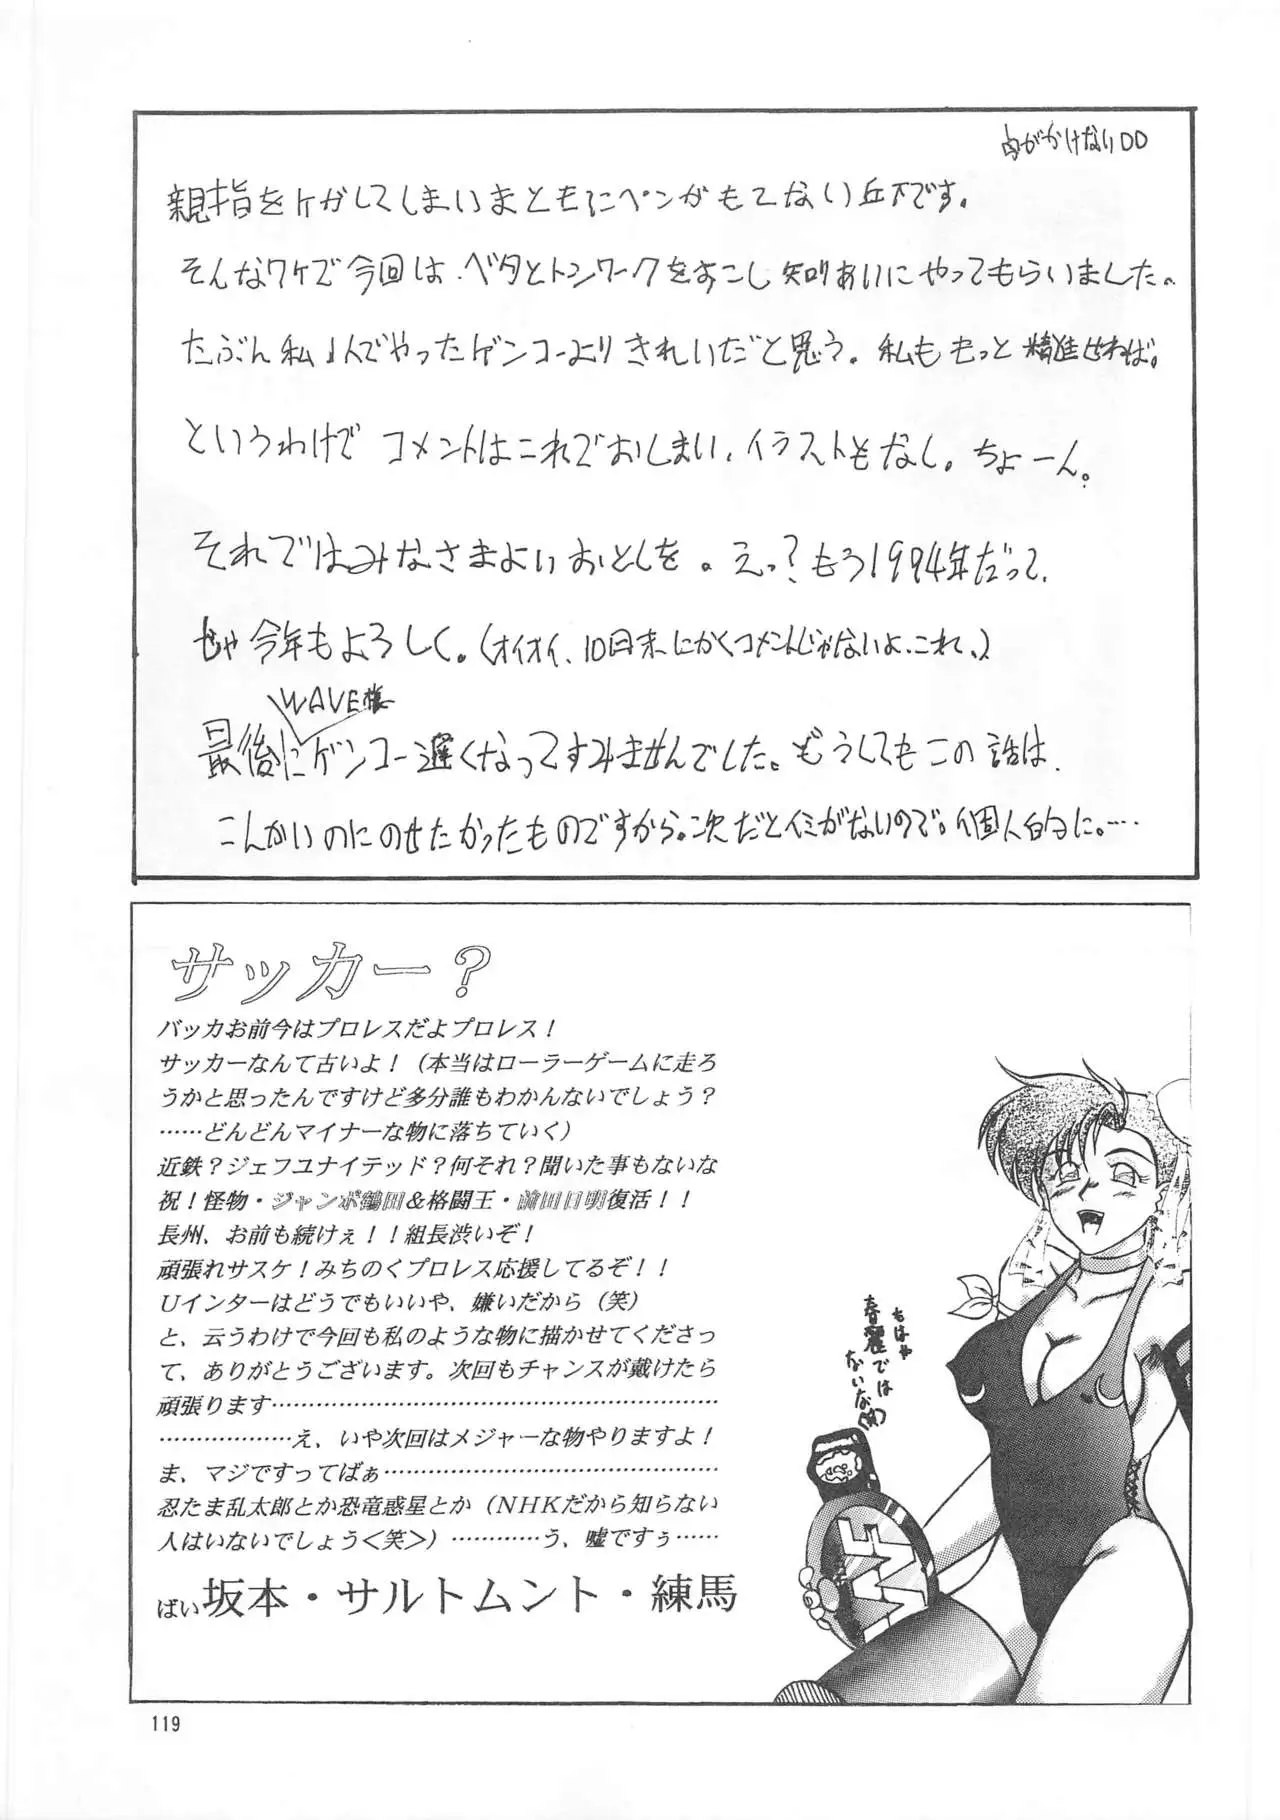 字がかけないDD
親指をケガしてしまいまともにペンがもてない丘下です。
そんなワケで今回は、ベタとトンワークをすこし知りあいにやってもらいました。
たぶん私1人でやったゲンコーよりきれいだと思う。私ももっと精進せねば。
というわけでコメントはこれでおしまい、イラストもなし。ちょーん。
それではみなさまよいおとしを。えっ?もう1994年だって、
じゃ今年もよろしく。(オイオイ、10日末にかくコメントじゃないよ、これ、)
WAVE様
最後にゲンコー遅くなってすみませんでした。どうしてもこの話は、
こんかいのにのせたかったものですから。次だとイミがないので。個人的に。…
サッカー?
バッカお前今はプロレスだよプロレス!
サッカーなんて古いよ!(本当はローラーゲームに走ろ
うかと思ったんですけど多分誰もわかんないでしょう?
……どんどんマイナーな物に落ちていく)
近鉄?ジェフユナイテッド?何それ?聞いた事もないな
祝!怪物・ジャンボ鶴田&格闘王・前田日明復活!!
長州、お前も続けぇ!!組長渋いぞ!
頑張れサスケ!みちのくプロレス応援してるぞ!!
Uインターはどうでもいいや、嫌いだから(笑)
と、云うわけで今回も私のような物に描かせてくださっ
て、ありがとうございます。次回もチャンスが戴けたら
頑張ります……………………………………………………
………………え、いや次回はメジャーな物やりますよ!
ま、マジですってばぁ………………………………………
忍たま乱太郎とか恐竜惑星とか(NHKだから知らない
人はいないでしょう<笑>)…………う、嘘ですぅ……
ばい坂本・サルトムント・練馬
もはや
春麗では
ないな(笑)
119